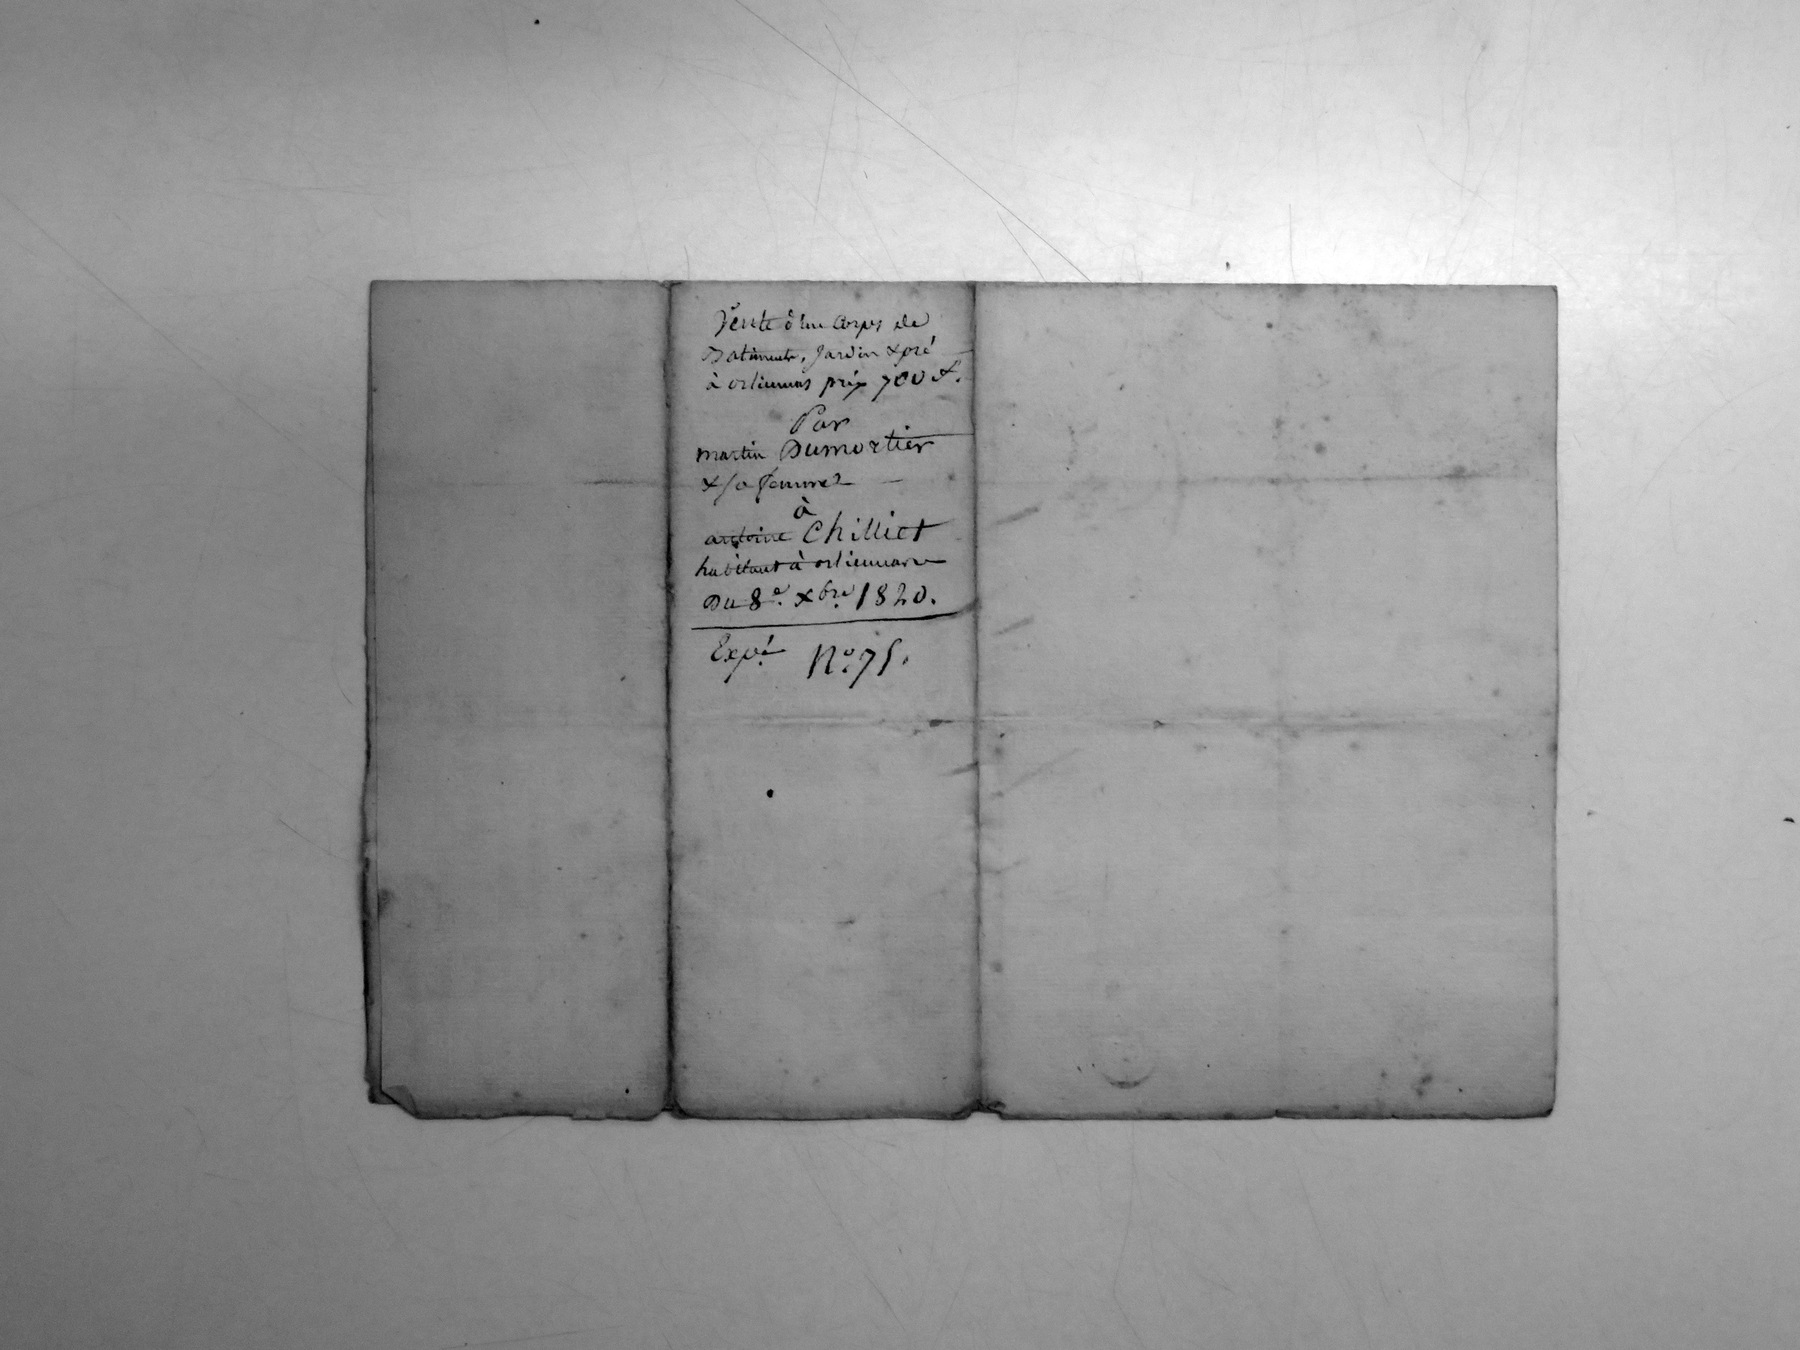 Vente d'un Corps de
Batiments, Jardin & pré
à orlienas prix 700 f.
Par
martin Dumortier
& sa femme
à
antoine Chilliet
habitant à orlienas
Du 8e. xbre. 1820.
Expé. No. 75.